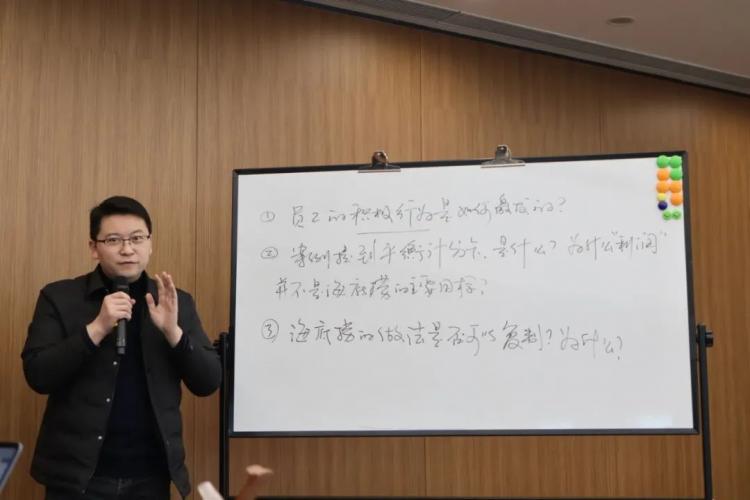 ① 员工的积极行为是如何激发的?
② 案例提到平衡计分卡,是什么?为什么"利润"
并不是海底捞的主要目标?
③ 海底捞的做法是否可以复制?为什么?